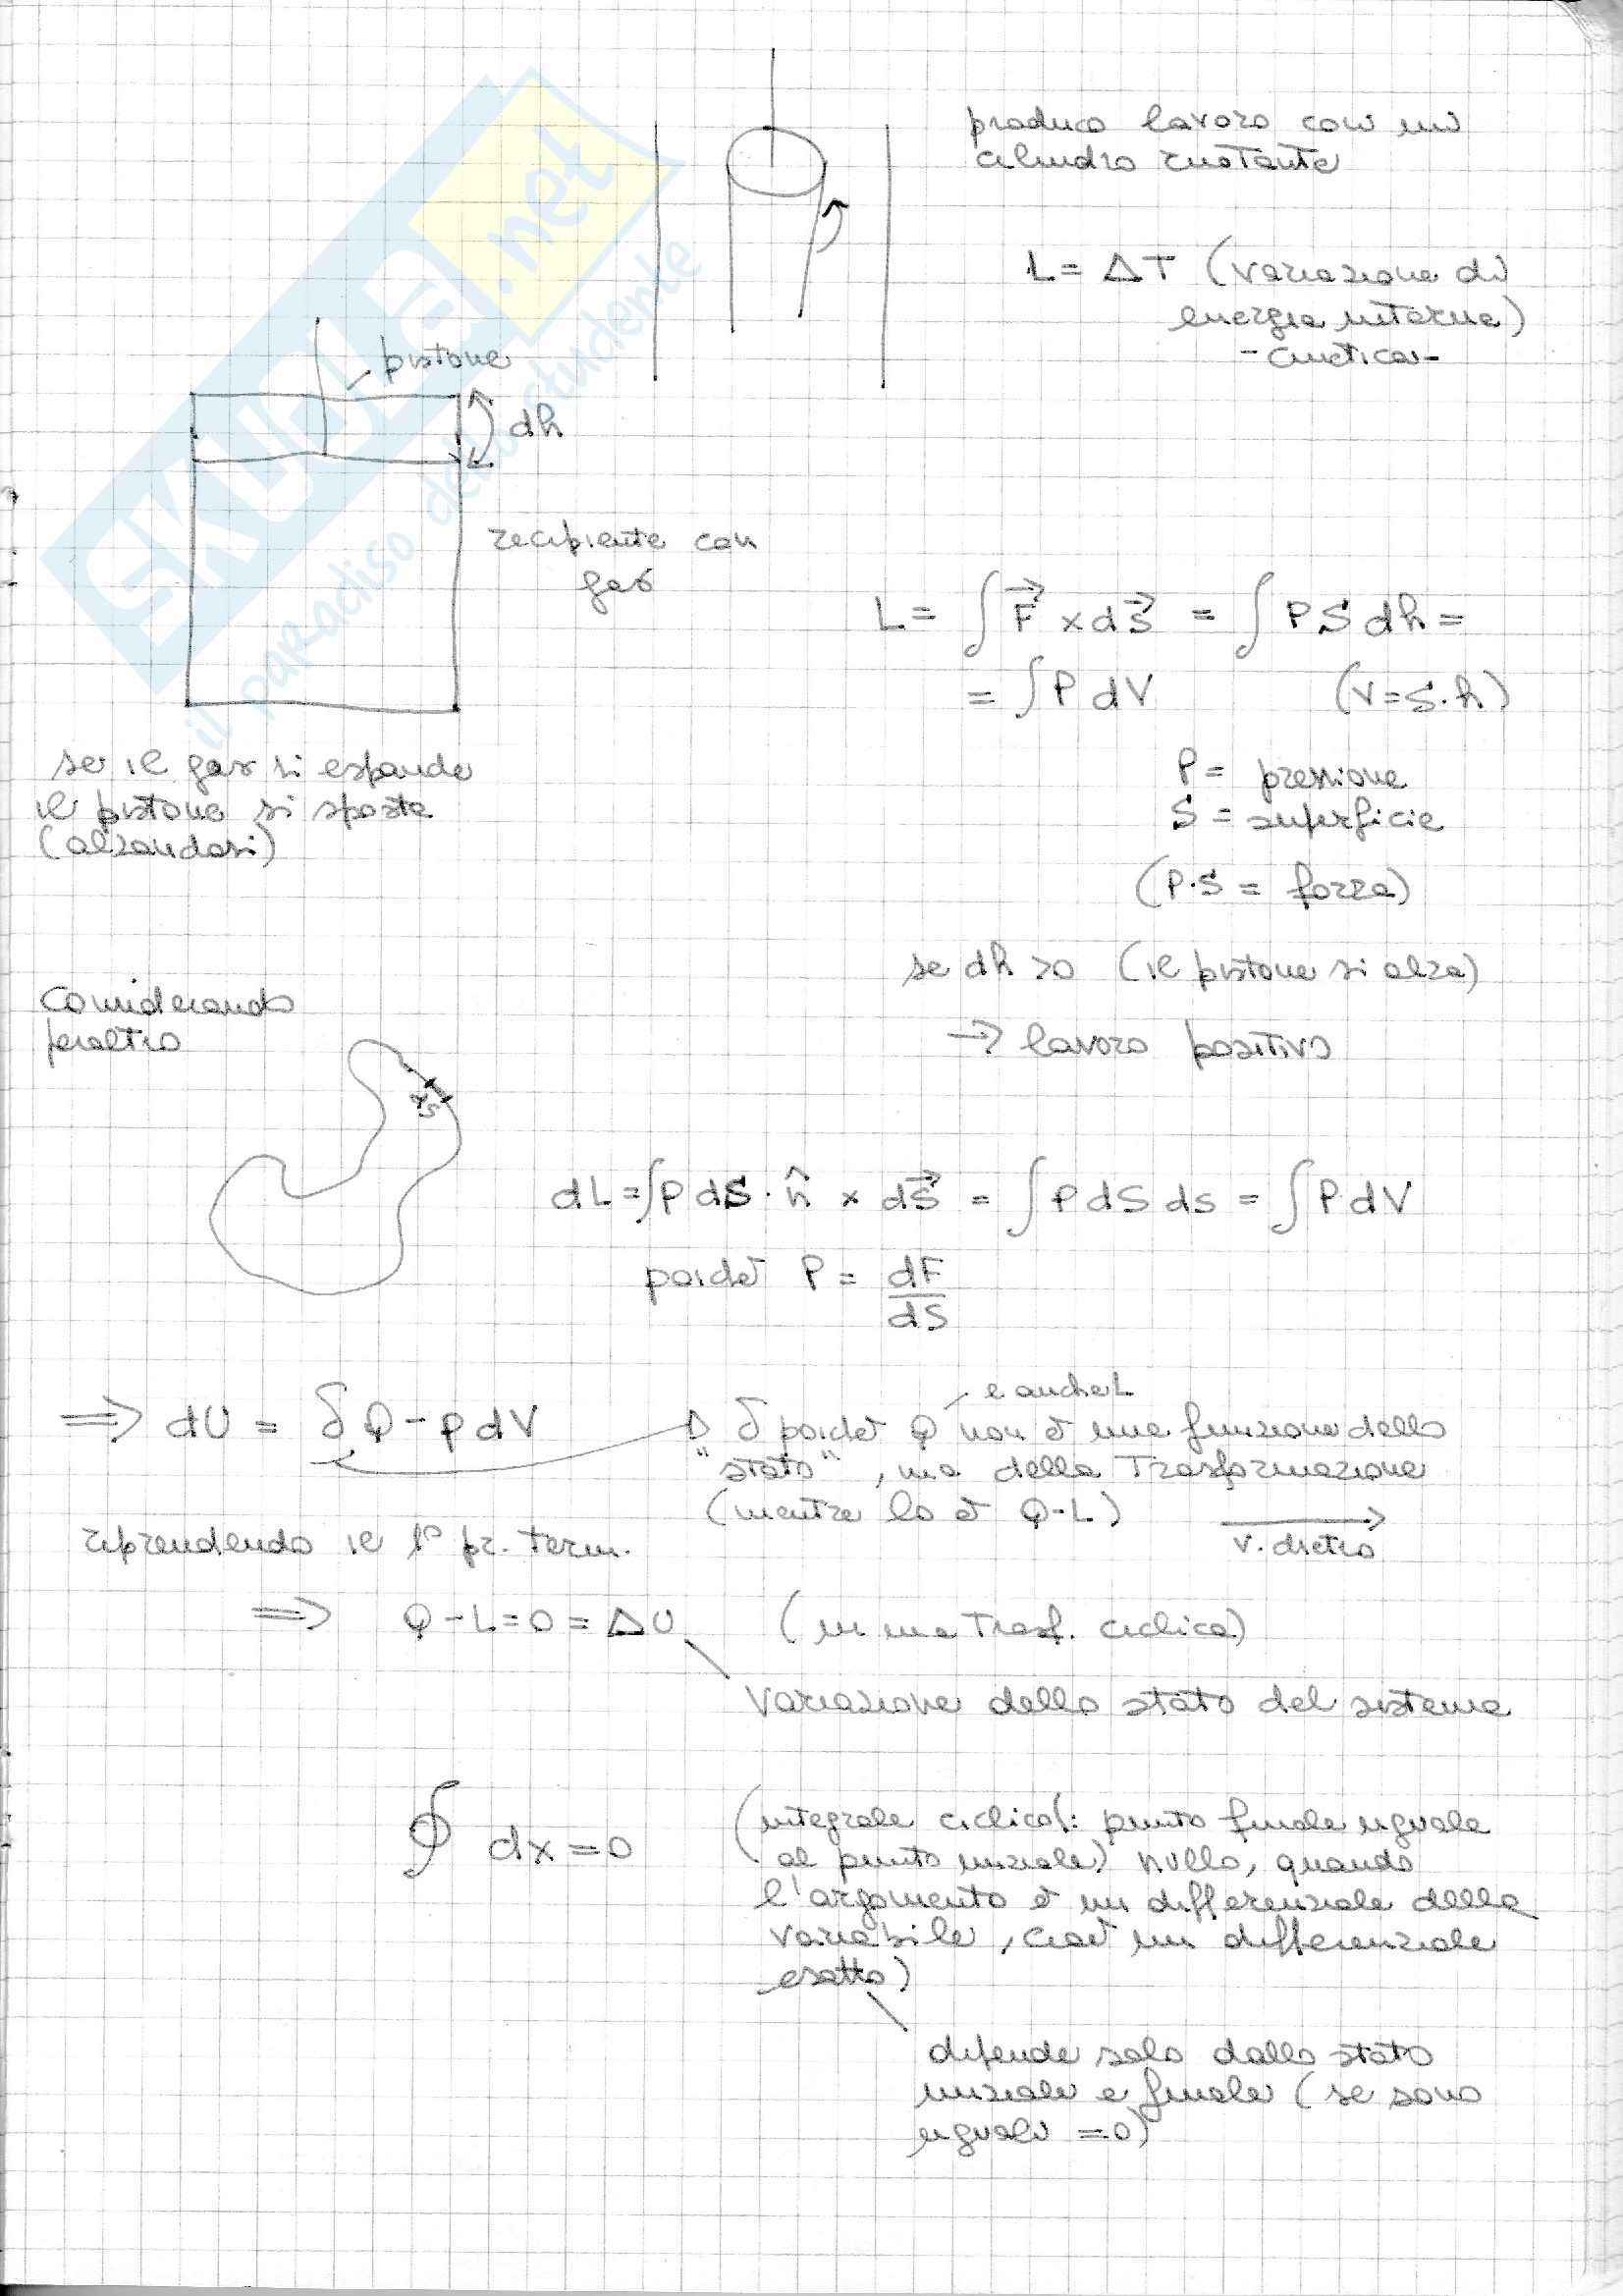 SKUOLA.net
il paradiso dello studente
produco lavoro con un
cilindro ruotante
L = ΔT (variazione di
energia interna)
- cinetica -
pistone
dh
recipiente con
gas
L = ∫ F⃗ × ds⃗ = ∫ P S dh =
= ∫ P dV (V = S·h)
se il gas si espande
il pistone si sposta
(alzandosi)
P = pressione
S = superficie
(P·S = forza)
se dh > 0 (il pistone si alza)
→ lavoro positivo
Considerando
peraltro
dS
dL = ∫ P dS · n̂ × ds⃗ = ∫ P dS ds = ∫ P dV
poiché P = dF/dS
⇒ dU = δQ - p dV
e anche L
δ poiché Q non è una funzione dello
"stato", ma della Trasformazione
(mentre lo è Q-L)
v. dietro
riprendendo il 1° pr. term.
⇒ Q - L = 0 = ΔU (in una Trasf. ciclica)
variazione dello stato del sistema
∮ dx = 0
(integrale ciclico(: punto finale uguale
al punto iniziale) nullo, quando
l'argomento è un differenziale della
variabile, cioè un differenziale
esatto)
dipende solo dallo stato
iniziale e finale (se sono
uguali = 0)